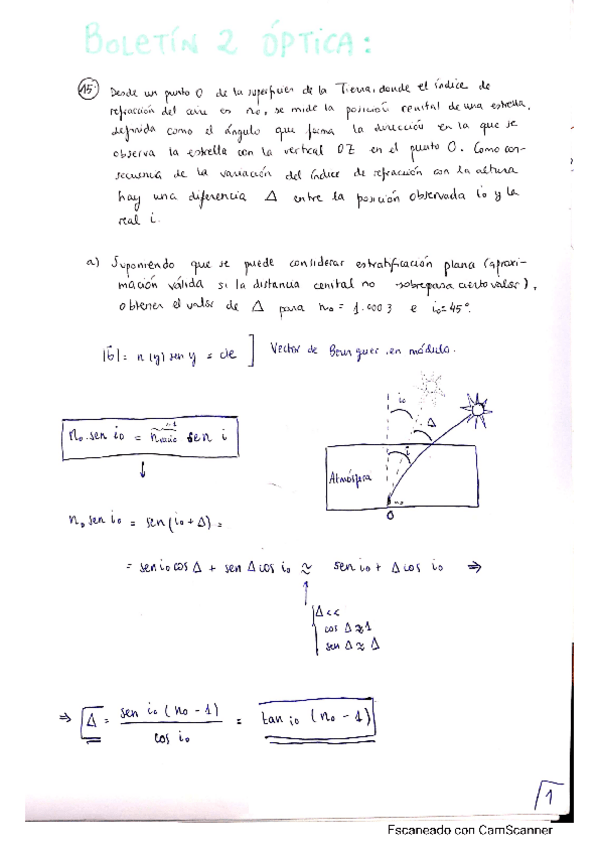 BOLETÍN 2 ÓPTICA:
15. Desde un punto O de la superficie de la Tierra, donde el índice de
refracción del aire es n₀, se mide la posición cenital de una estrella,
definida como el ángulo que forma la dirección en la que se
observa la estrella con la vertical OZ en el punto O. Como con-
secuencia de la variación del índice de refracción con la altura
hay una diferencia Δ entre la posición observada i₀ y la
real i.
a) Suponiendo que se puede considerar estratificación plana (aproxi-
mación válida si la distancia cenital no sobrepasa cierto valor),
obtener el valor de Δ para n₀ = 1.0003 e i₀ = 45º.
|b| = n(y) sen y = cte ] Vector de Bouguer en módulo.
i₀
Δ
n₀ · sen i₀ = n vacío sen i
~1
i
Atmósfera
n₀
O
↓
n₀ sen i₀ = sen (i₀ + Δ) =
= sen i₀ cos Δ + sen Δ cos i₀ ≈ sen i₀ + Δ cos i₀ ⇒
Δ <<
cos Δ ≈ 1
sen Δ ≈ Δ
⇒ Δ = sen i₀ (n₀ - 1) / cos i₀ = tan i₀ (n₀ - 1)
1
Escaneado con CamScanner